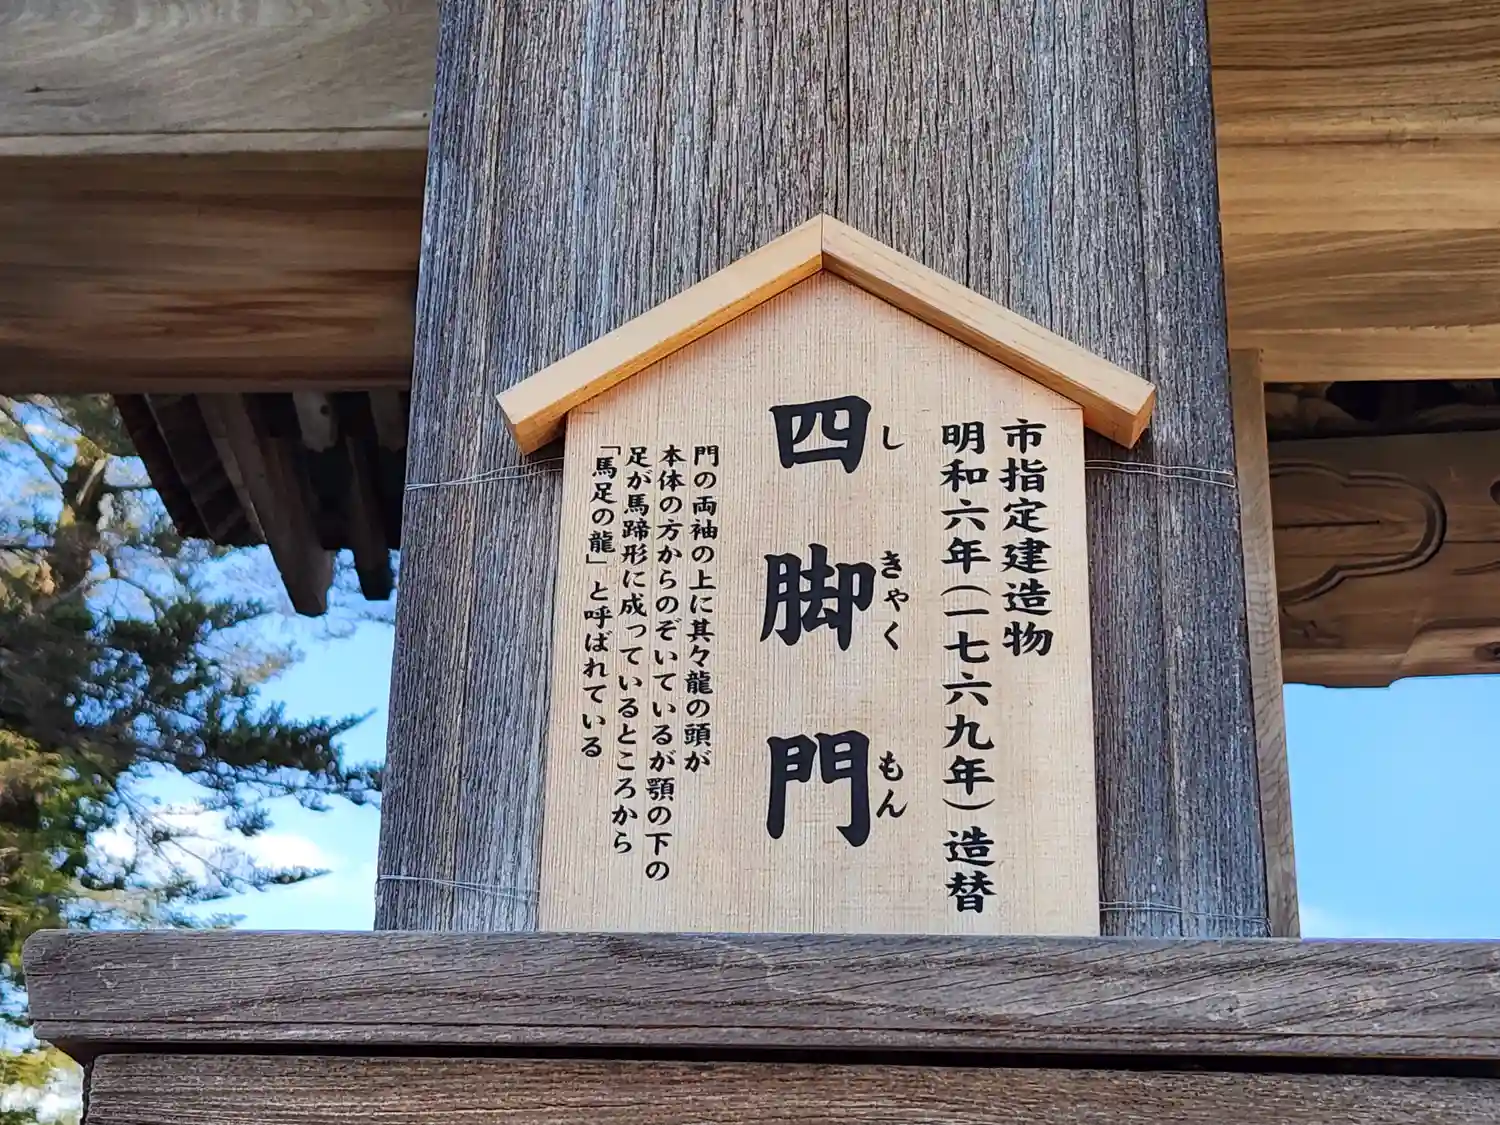 市指定建造物
明和六年(一七六九年)造替
四脚門
しきゃくもん
門の両袖の上に其々龍の頭が
本体の方からのぞいているが顎の下の
足が馬蹄形に成っているところから
「馬足の龍」と呼ばれている